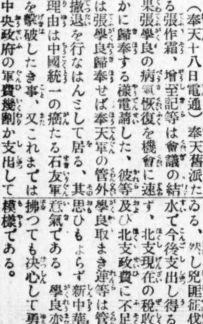 (奉天十八日電通)奉天舊派た
る張作霜、增至記等は會議の結
果張學良の病氣恢復を機會に速
かに歸奉する樣電請した、彼等
は張學良歸奉せば奉天軍の管外
撤退を行なはんとして居る、其
理由は中國統一の癌たる石友軍
を擊破したき事、又これまでは
中央政府の軍費幾割か支出して
ゐる、然し兇匪征伐
水で今後支出し得る
ず、北支現在の稅收
及び北支政費に不足
學良取まき連等は管
思ひもよらず新中華
意氣である、學良亦
拂つても決心して勇
模樣である。